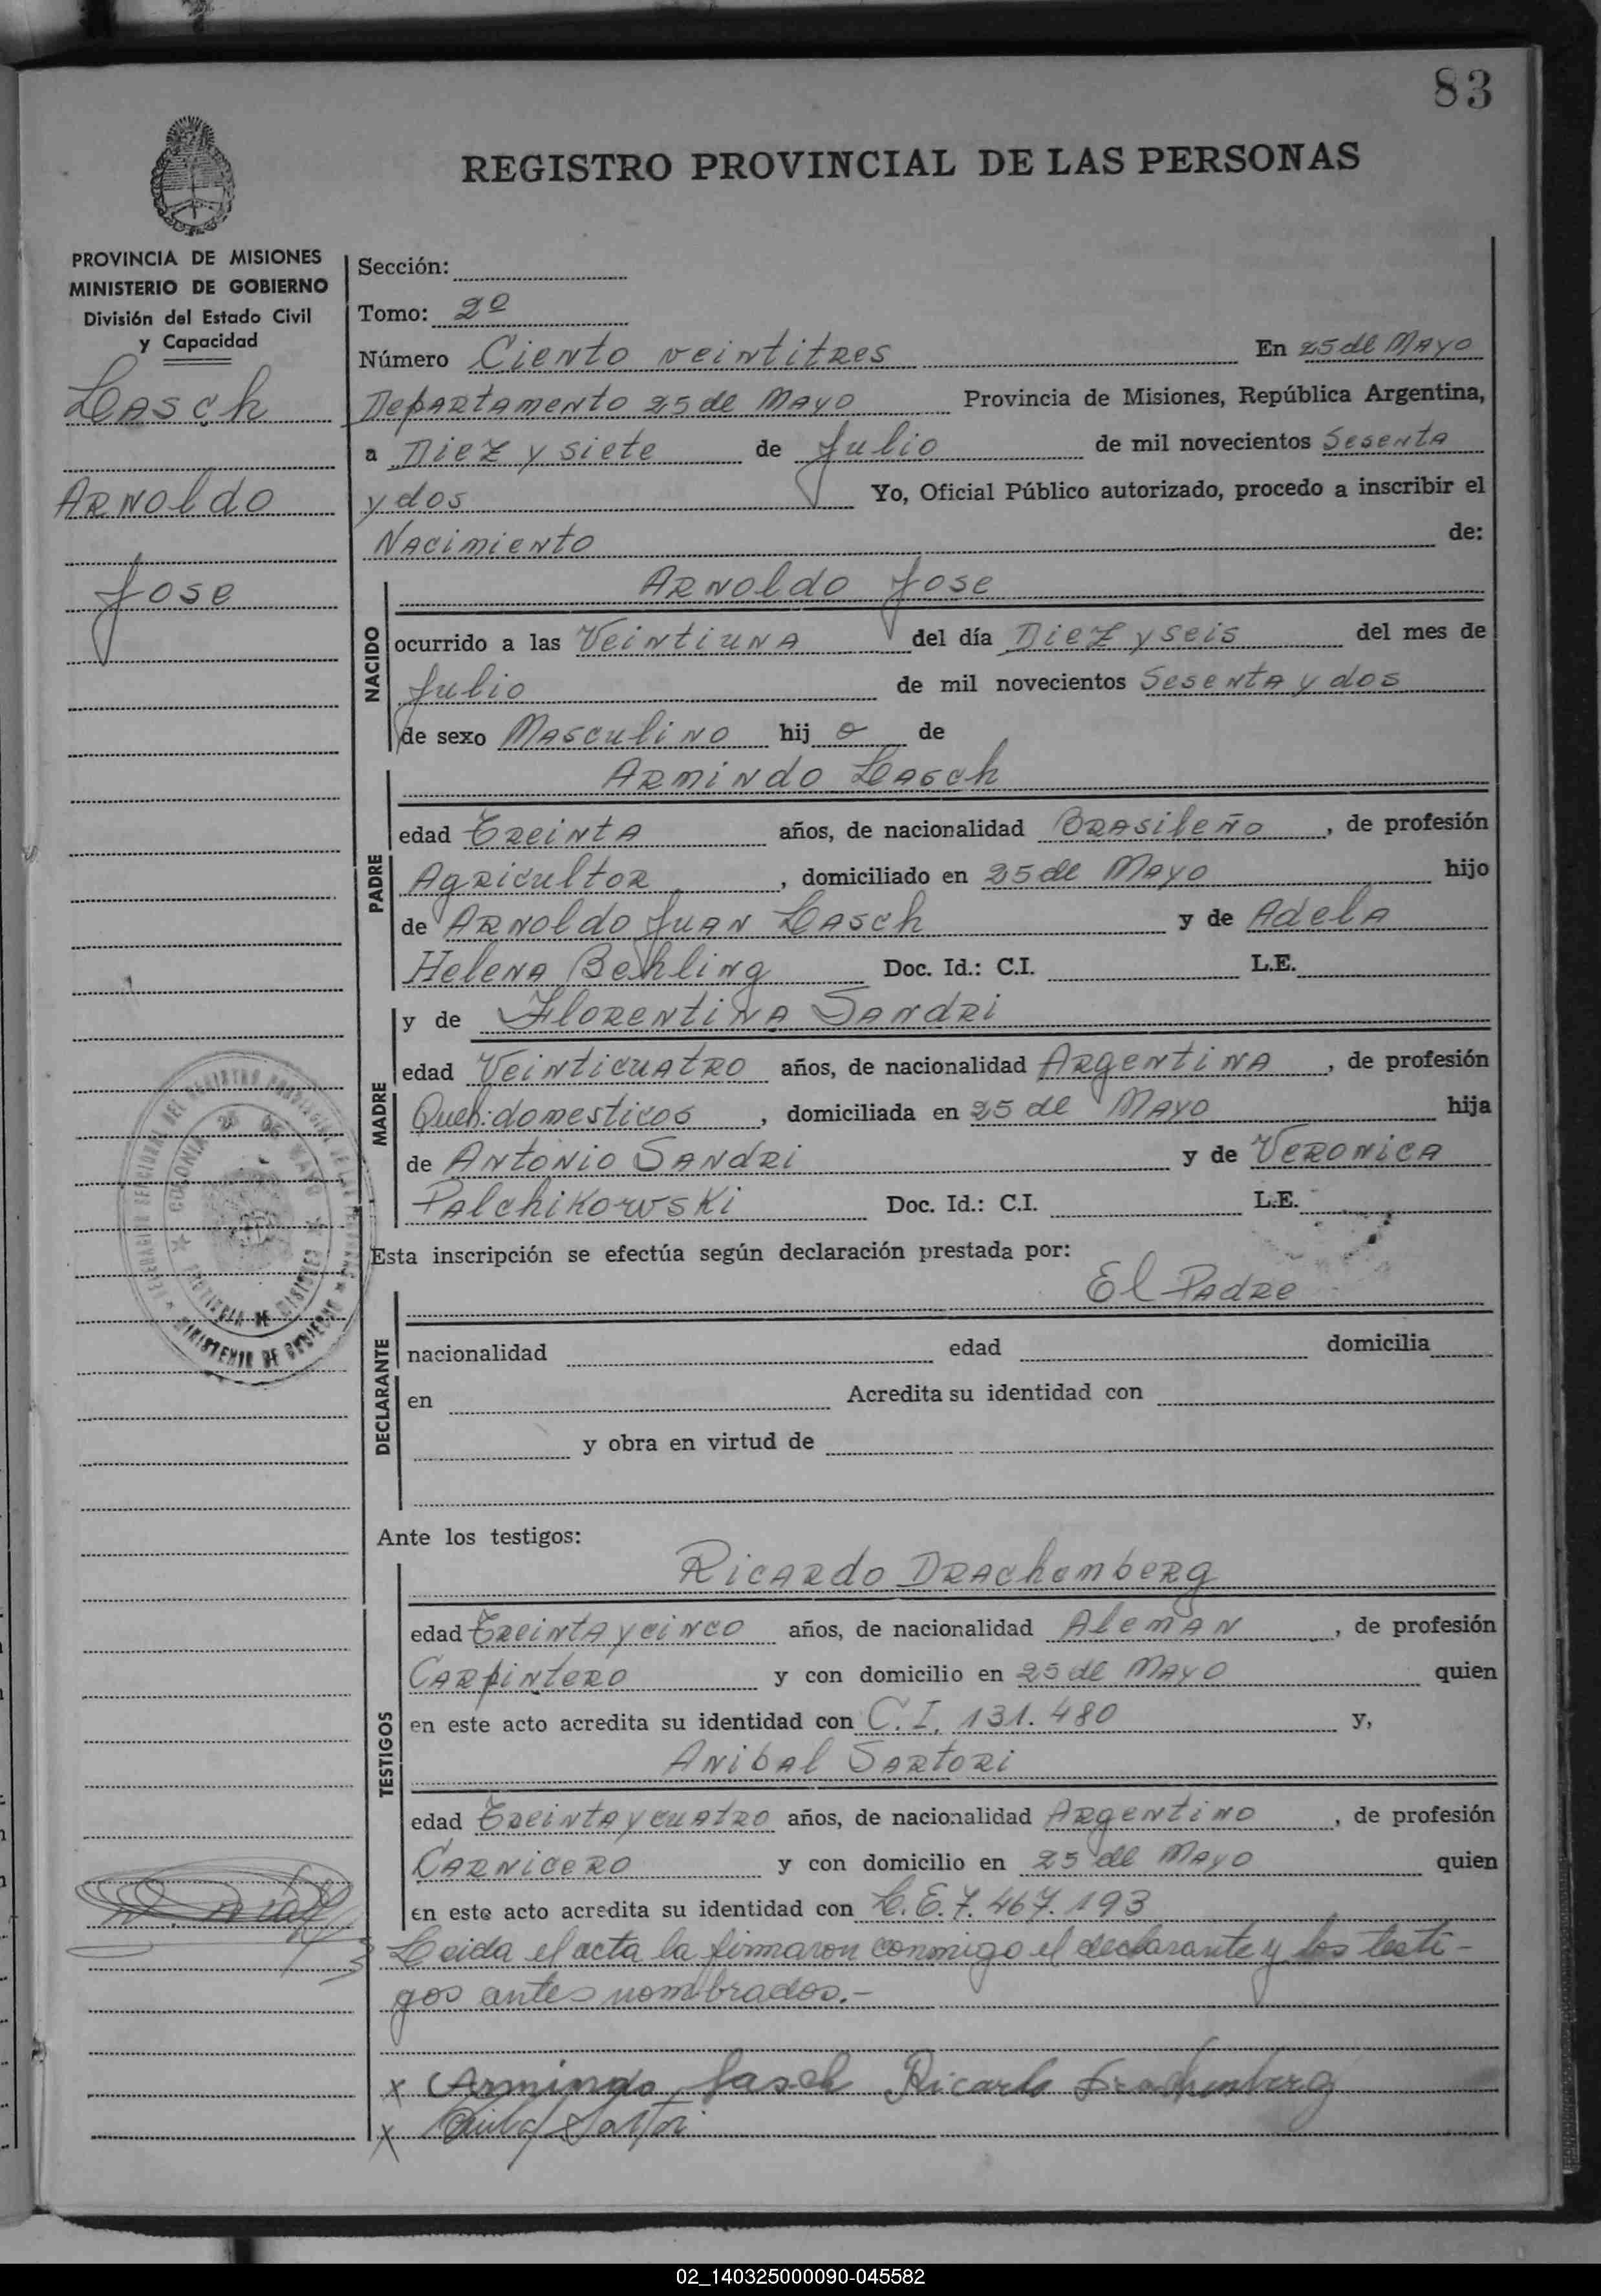 83
REGISTRO PROVINCIAL DE LAS PERSONAS
PROVINCIA DE MISIONES
MINISTERIO DE GOBIERNO
División del Estado Civil
y Capacidad
Lasch
Arnoldo
Jose
Sección:
Tomo: 2º
Número Ciento veintitres En 25 de Mayo
Departamento 25 de Mayo Provincia de Misiones, República Argentina,
a Diez y siete de Julio de mil novecientos Sesenta
y dos Yo, Oficial Público autorizado, procedo a inscribir el
Nacimiento de:
NACIDO
Arnoldo Jose
ocurrido a las Veintiuna del día Diez y seis del mes de
Julio de mil novecientos Sesenta y dos
de sexo Masculino hij o de
PADRE
Armindo Lasch
edad Treinta años, de nacionalidad Brasileño, de profesión
Agricultor, domiciliado en 25 de Mayo hijo
de Arnoldo Juan Lasch y de Adela
Helena Behling Doc. Id.: C.I. L.E.
MADRE
y de Florentina Sandri
edad Veinticuatro años, de nacionalidad Argentina, de profesión
Queh: domesticos, domiciliada en 25 de Mayo hija
de Antonio Sandri y de Veronica
Palchikowski Doc. Id.: C.I. L.E.
COLONIA 25 DE MAYO
MINISTERIO DE GOBIERNO
Esta inscripción se efectúa según declaración prestada por:
El Padre
DECLARANTE
nacionalidad edad domicilia
en Acredita su identidad con
y obra en virtud de
Ante los testigos:
TESTIGOS
Ricardo Drachemberg
edad Treinta y cinco años, de nacionalidad Aleman, de profesión
Carpintero y con domicilio en 25 de Mayo quien
en este acto acredita su identidad con C.I. 131.480 y,
Anibal Sartori
edad Treinta y cuatro años, de nacionalidad Argentino, de profesión
Carnicero y con domicilio en 25 de Mayo quien
en este acto acredita su identidad con L.E. 7.467.193
Leida el acta la firmaron conmigo el declarante y los testi-
gos antes nombrados.-
x Armindo Lasch Ricardo Drachenberg
x Anibal Sartori
02_140325000090-045582